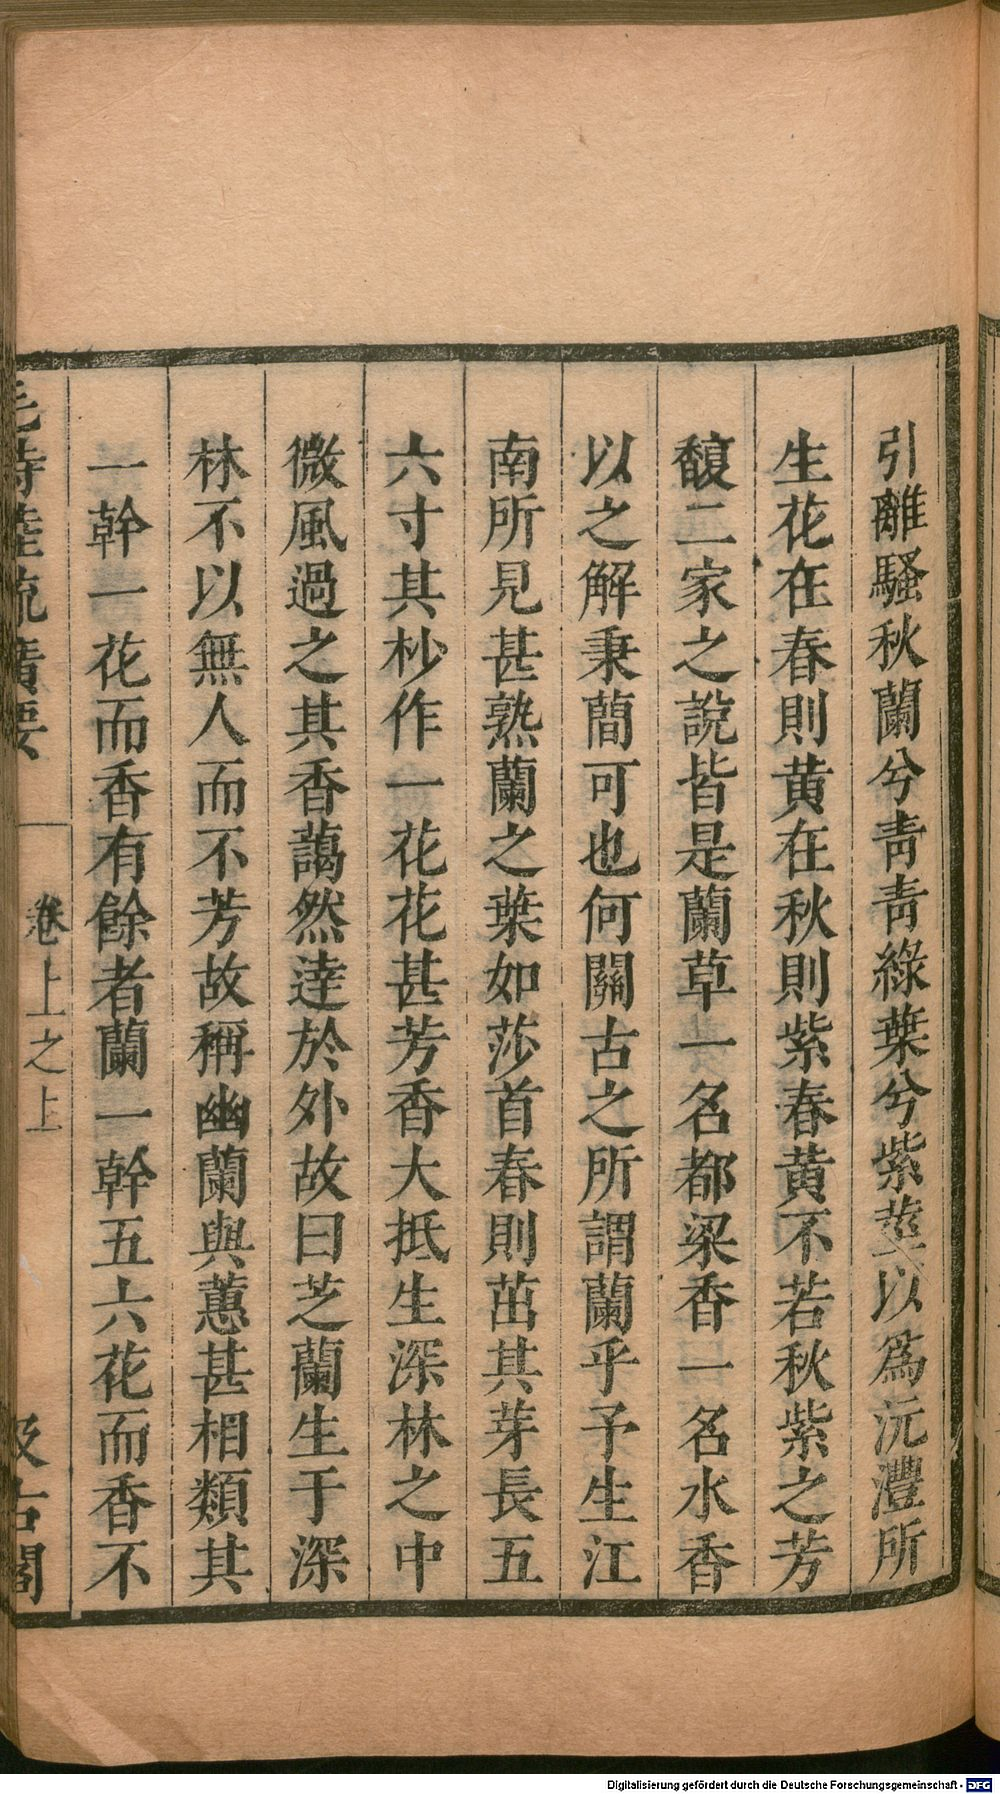 引離騷秋蘭兮靑靑綠葉兮紫莖以爲沅灃所
生花在春則黄在秋則紫春黄不若秋紫之芳
馥二家之說皆是蘭草一名都梁香一名水香
以之解秉蕳可也何關古之所謂蘭乎予生江
南所見甚熟蘭之葉如莎首春則茁其芽長五
六寸其杪作一花花甚芳香大抵生深林之中
微風過之其香藹然逹於外故曰芝蘭生于深
林不以無人而不芳故稱幽蘭與蕙甚相類其
一幹一花而香有餘者蘭一幹五六花而香不
毛詩陸疏廣要 卷上之上 汲古閣
Digitalisierung gefördert durch die Deutsche Forschungsgemeinschaft - DFG